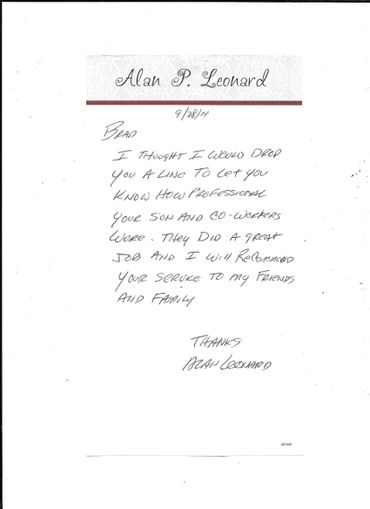 Alan P. Leonard
9/28/11
BRAD
I THOUGHT I WOULD DROP
YOU A LINE TO LET YOU
KNOW HOW PROFESSIONAL
YOUR SON AND CO-WORKERS
WERE. THEY DID A GREAT
JOB AND I WILL RECOMMEND
YOUR SERVICE TO MY FRIENDS
AND FAMILY
THANKS
ALAN LEONARD